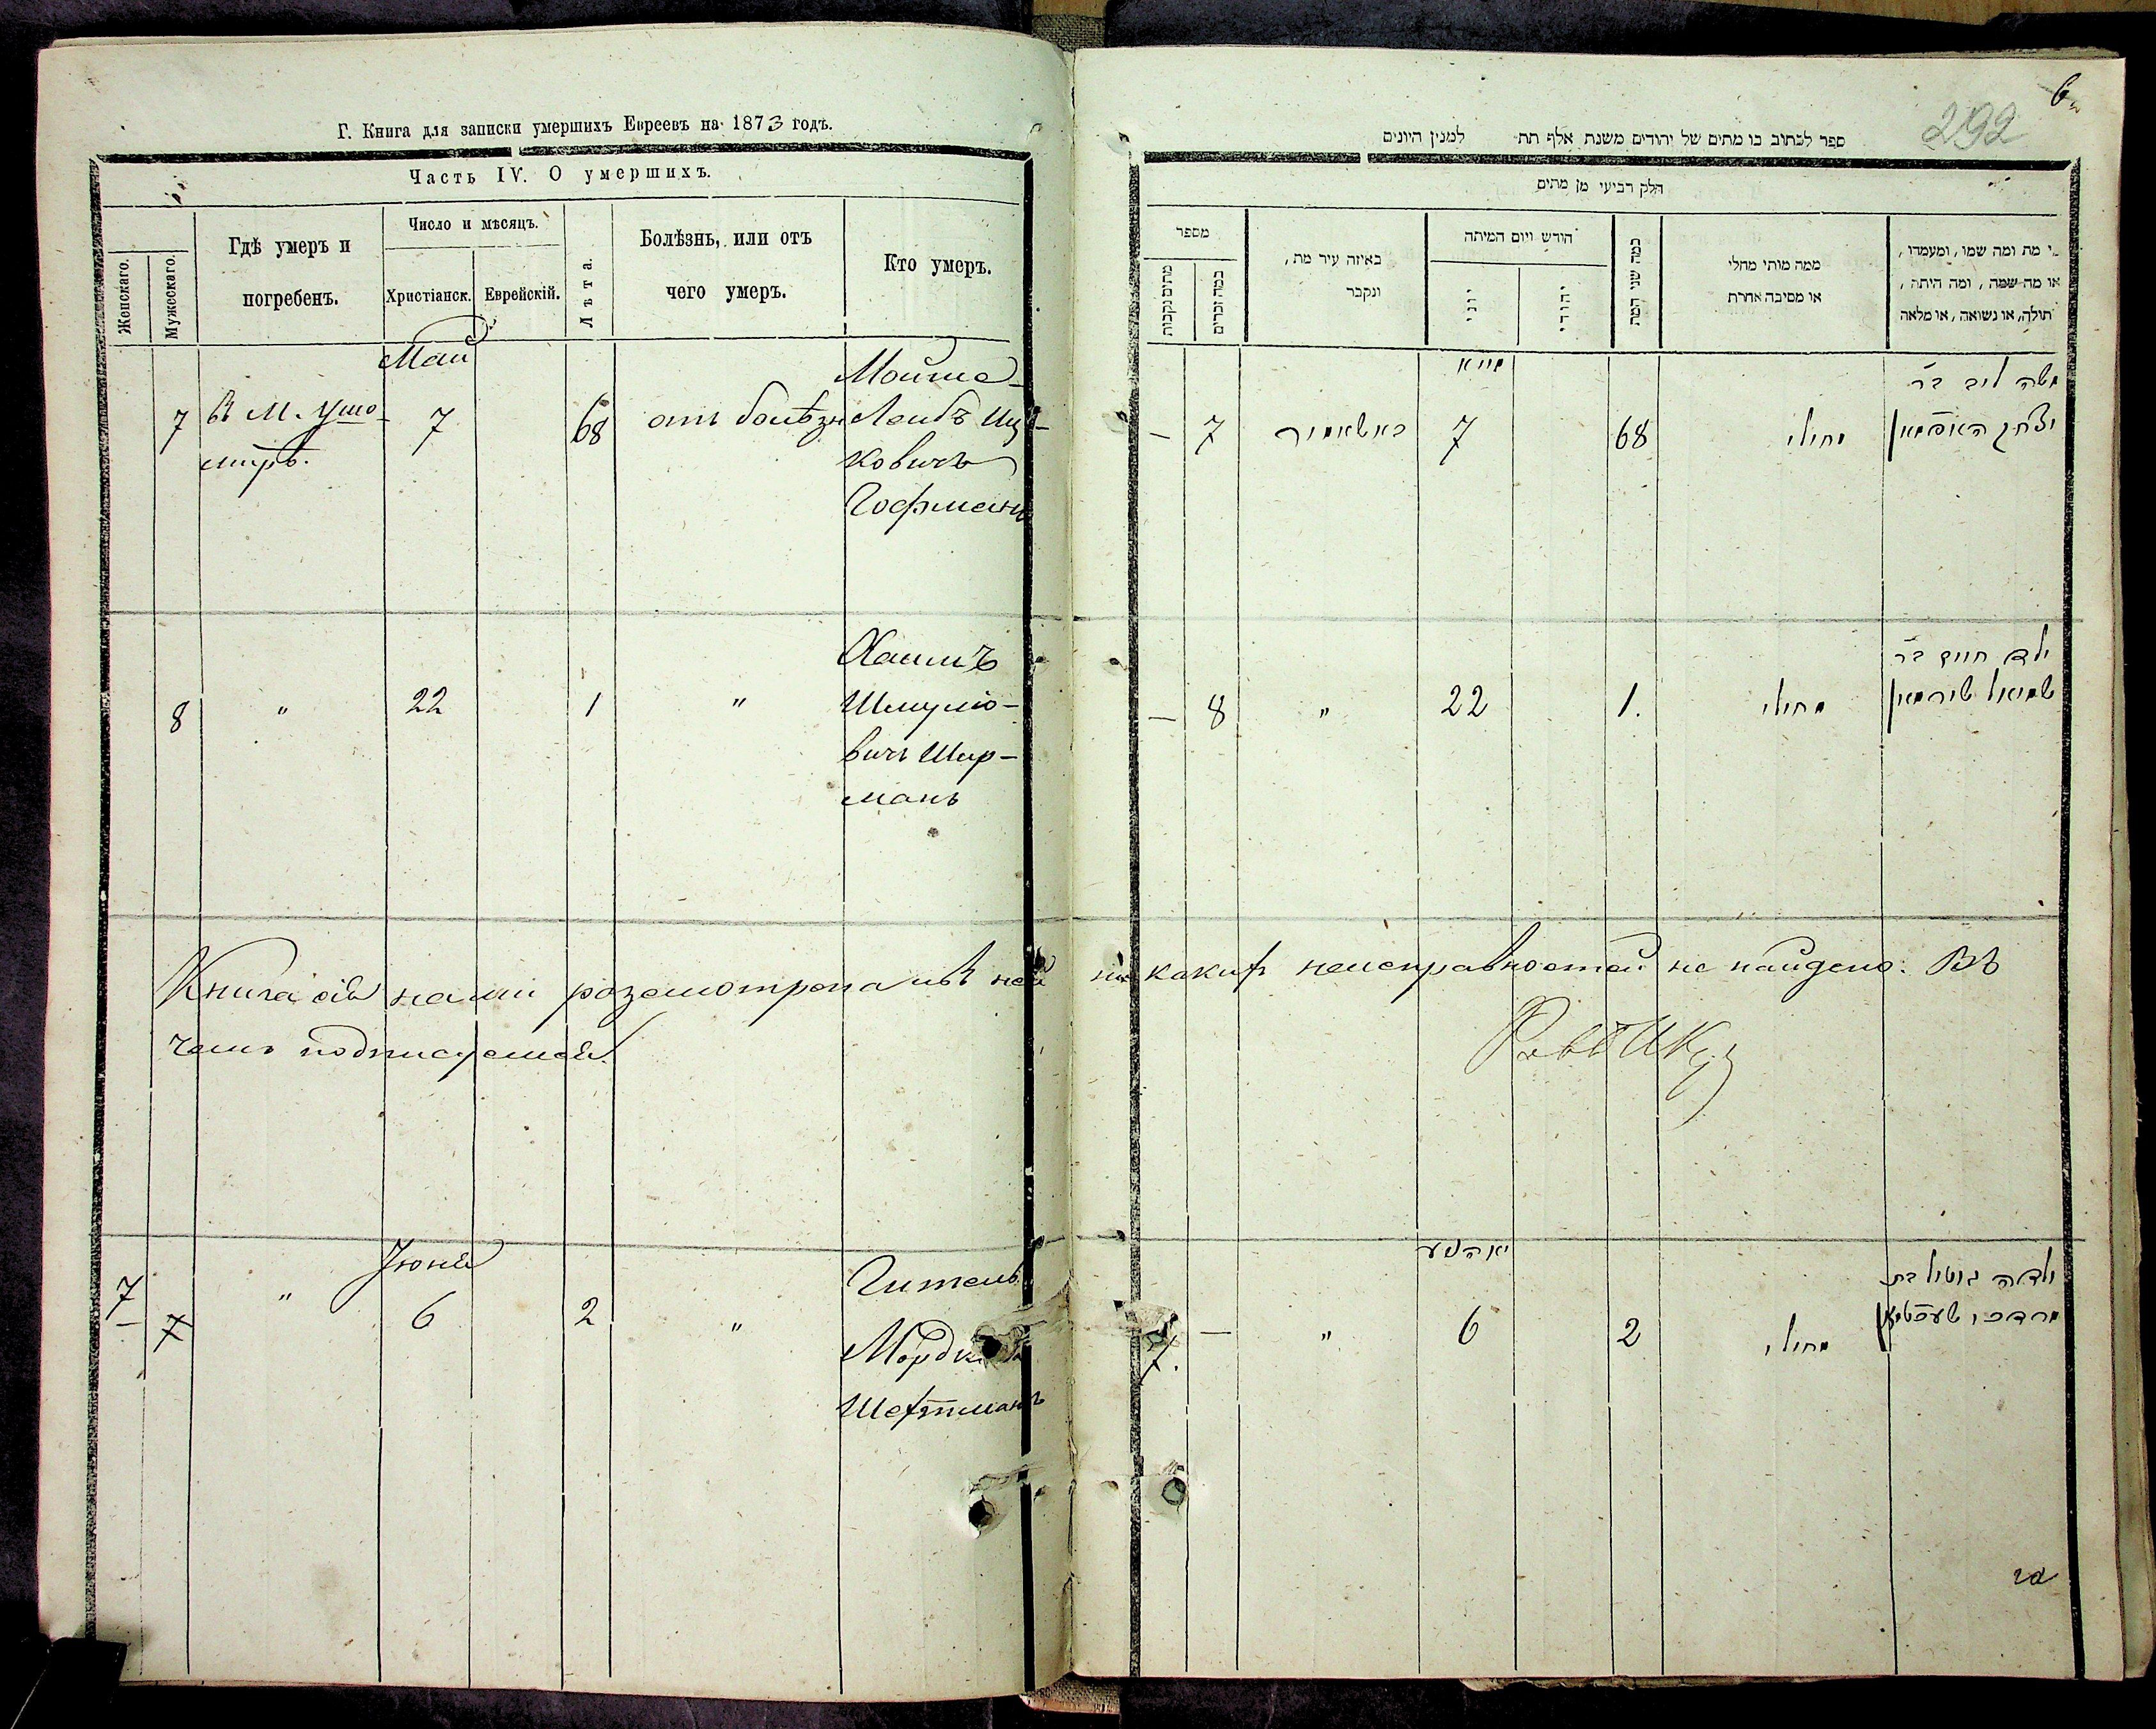 Г. Книга для записки умершихъ Евреевъ на 1873 годъ.
Часть IV. О умершихъ.
Женскаго.
Мужескаго.
Гдѣ умеръ и
погребенъ.
Число и мѣсяцъ.
Христіанск. Еврейскій.
Лѣта.
Болѣзнь, или отъ
чего умеръ.
Кто умеръ.
Май
7 въ М. Ушо- 7 68 отъ болѣзни
мирѣ.
Мошко-
Лейбъ Иц-
ковичъ
Гофманъ
8 " 22 1 "
Хаимъ
Шмулio-
вичъ Шир-
манъ
Книга сія нами розсмотрена и въ ней
чемъ подписуемся.
Іюня
7 — 7 " 6 2 "
Гитель
Шехтманъ
6
292
ספר לכתוב בו מתים של יהודים משנת אלף תת למנין היונים
חלק רביעי מן מתים
מספר
מתים נקבות
כמה זכרים
באיזה עיר מת,
ונקבר
חודש ויום המיתה
יוני
יהודי
כמה שני המת
ממה מותי מחלי
או מסיבה אחרת
י מת ומה שמו, ומעמדו,
או מה שמה, ומה היתה,
תולה, או נשואה, או מלאה
מייא
משה ליב בר
— 7 באשאמיר 7 68 מחולי יצחק האפמאן
ילד חיים בר
— 8 " 22 1. מחולי שמואל שירמאן
никакихъ неисправностей не найдено. Въ
7. — " 6 2 מחולי
ילדה גיטול בת
מרדכי שעכטמאן